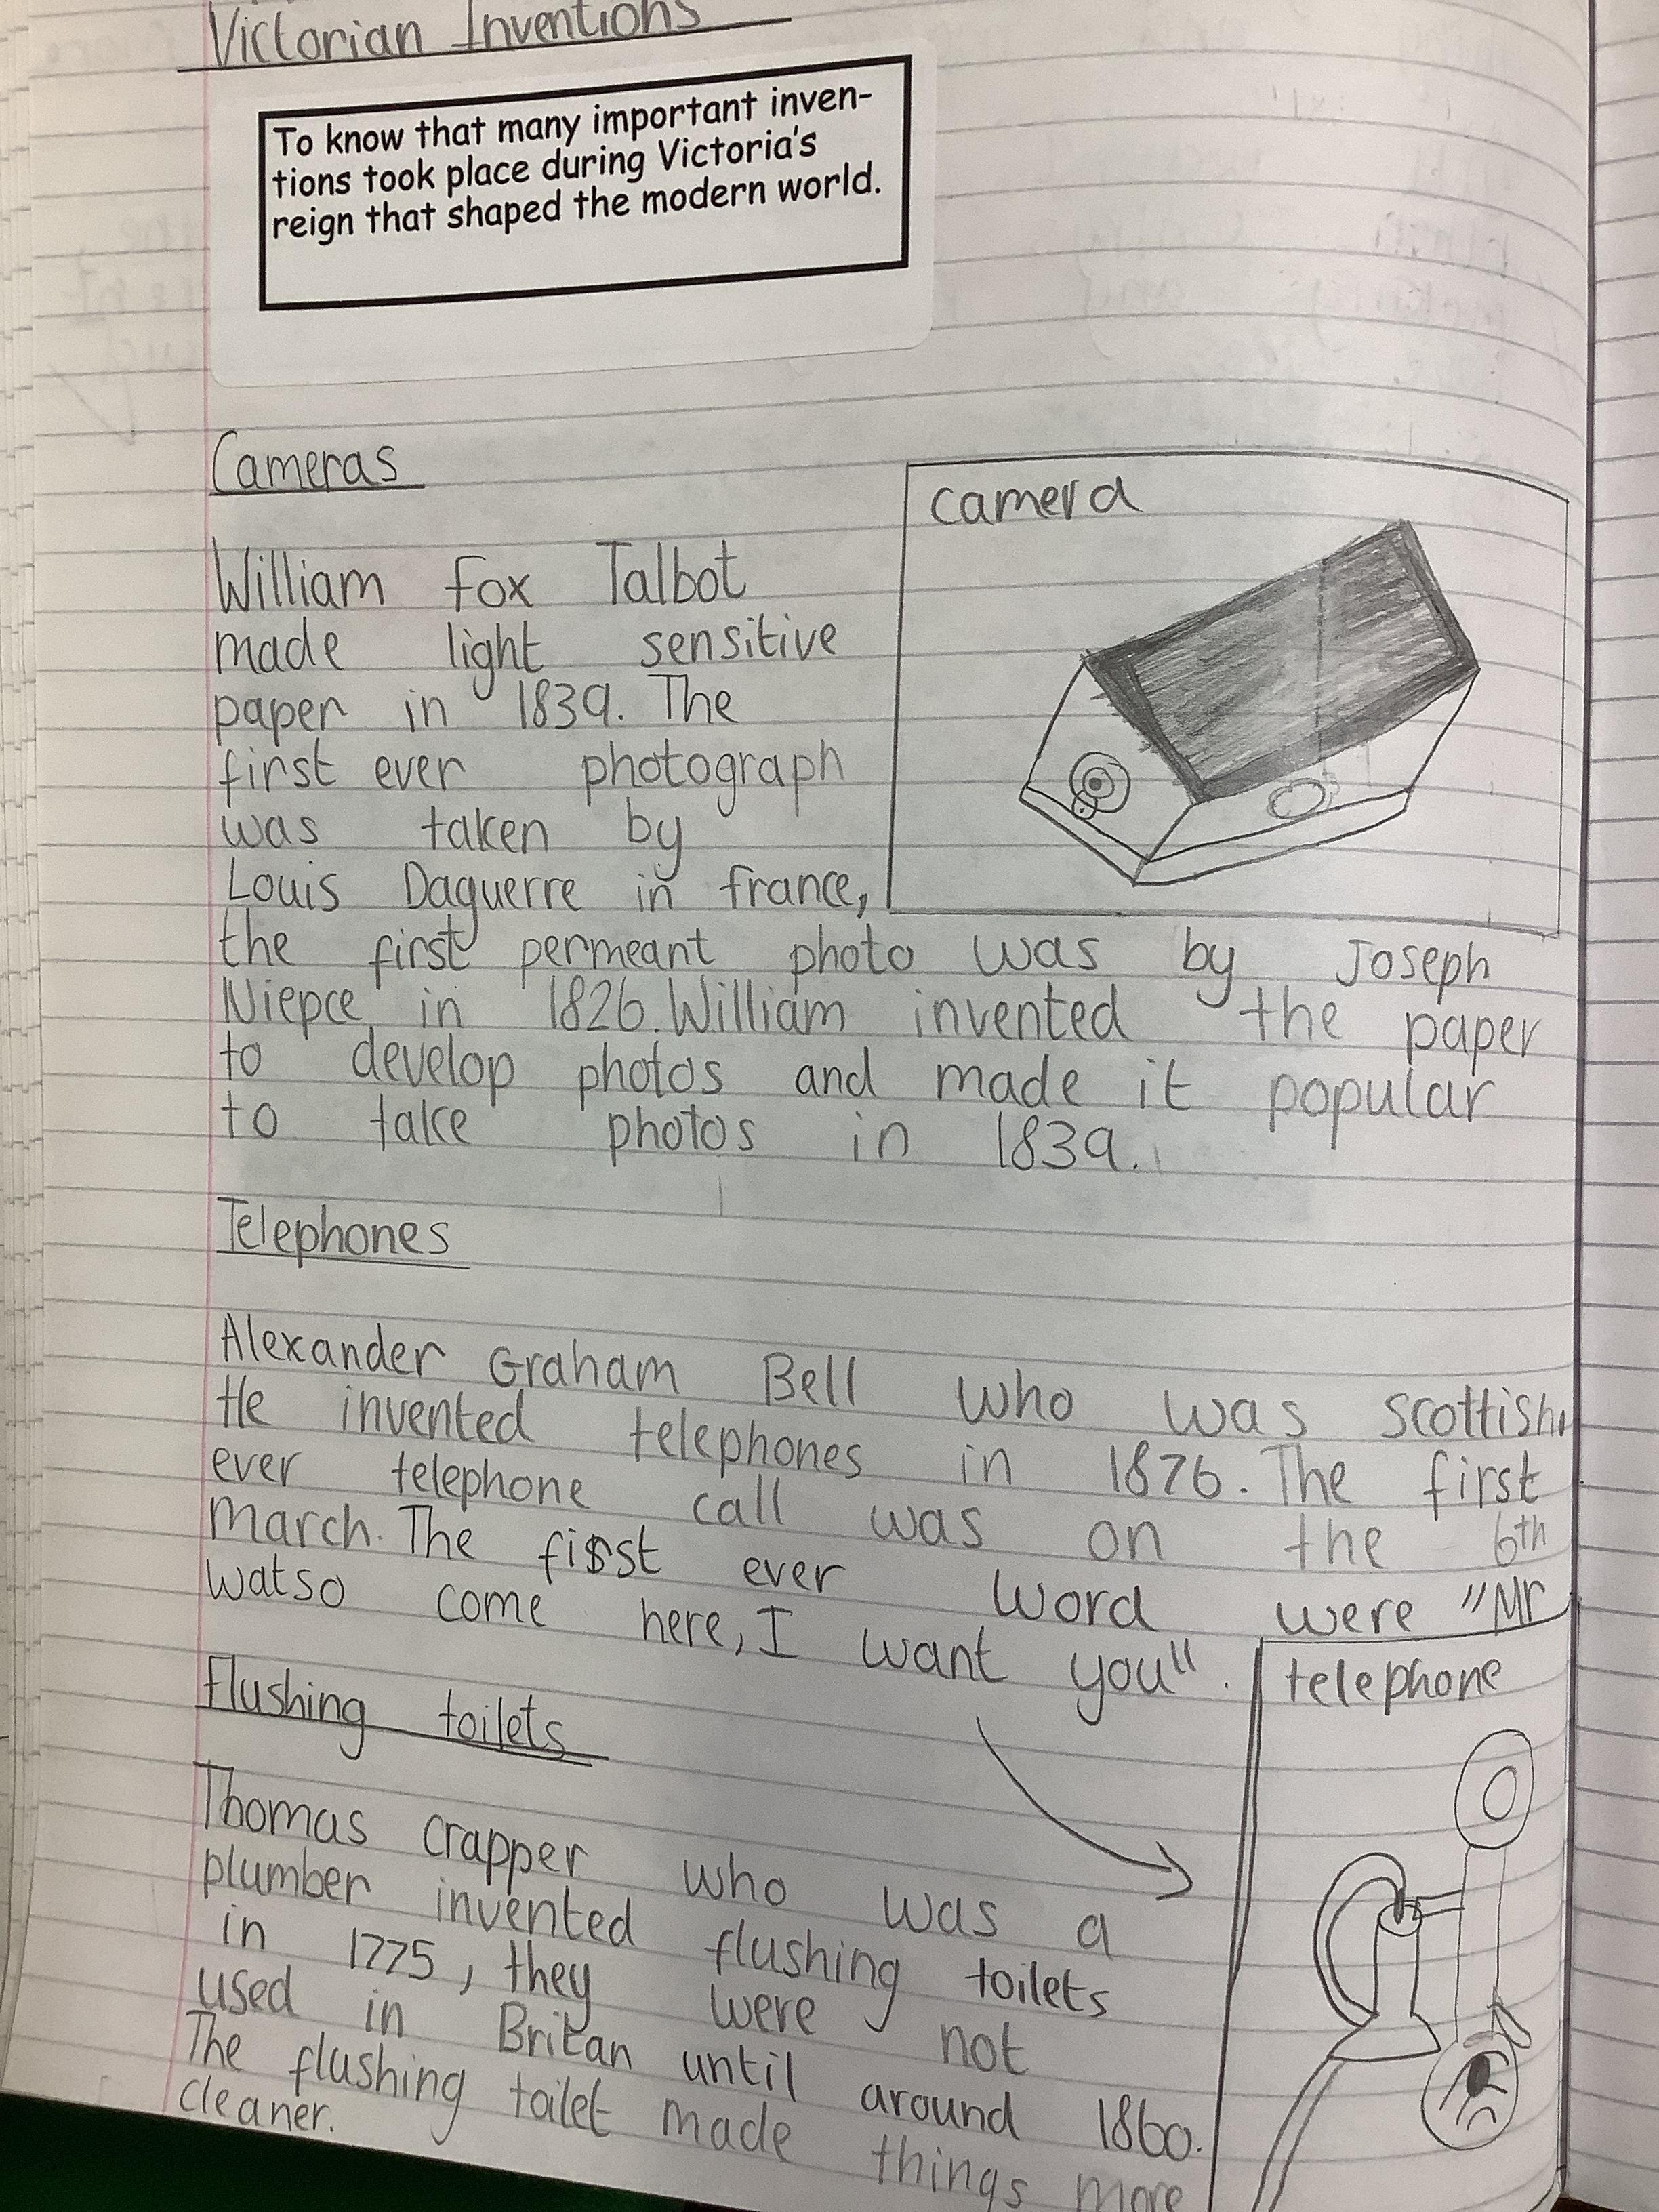 Victorian Inventions
To know that many important inven-
tions took place during Victoria's
reign that shaped the modern world.
Cameras
camera
William fox Talbot
made light sensitive
paper in 1839. The
first ever photograph
was taken by
Louis Daguerre in france,
the first permeant photo was by Joseph
Niepce in 1826. William invented the paper
to develop photos and made it popular
to take photos in 1839.
Telephones
Alexander Graham Bell who was scottish
He invented telephones in 1876. The first
ever telephone call was on the 6th
march. The first ever word were "Mr
watso come here, I want you".
telephone
flushing toilets
Thomas crapper who was a
plumber invented flushing toilets
in 1775, they were not
used in Britan until around 1860.
The flushing toilet made things more
cleaner.